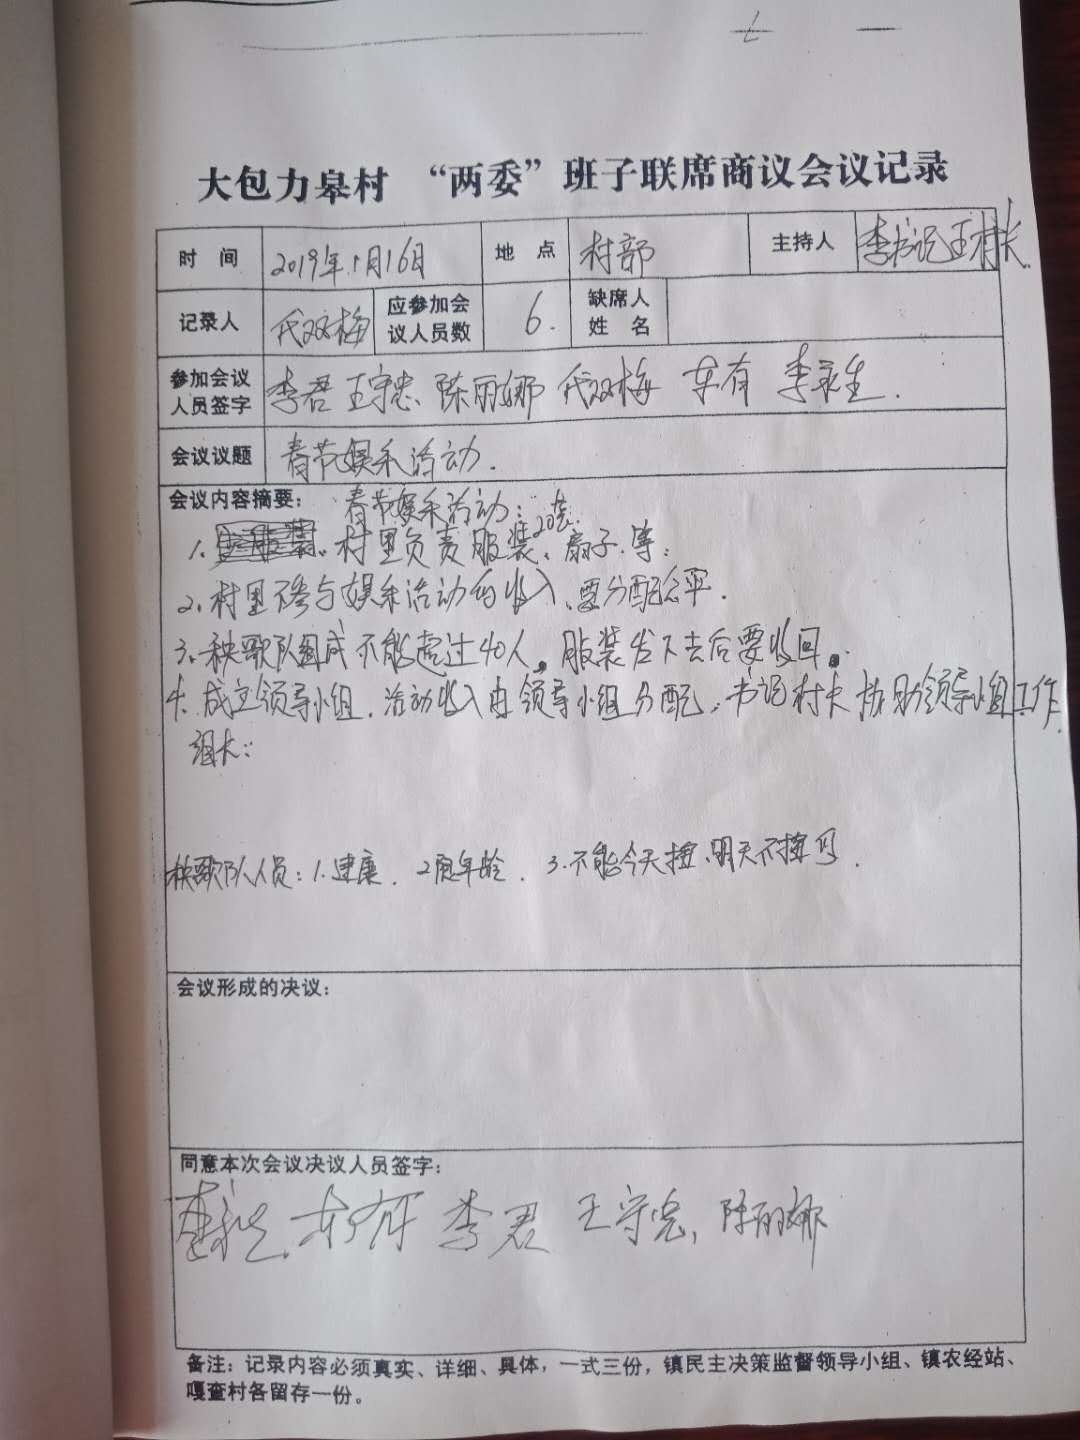 大包力皋村 “两委”班子联席商议会议记录
时 间 2019年1月16日 地 点 村部 主持人 李书记王村长.
记录人 代双梅 应参加会议人员数 6. 缺席人姓 名
参加会议人员签字 李君 王守忠、陈丽娜 代双梅 有 李永生.
会议议题 春节娱乐活动.
会议内容摘要: 春节娱乐活动:
1. 村里负责服装20套、扇子.等;
2. 村里不参与娱乐活动的收入、要分配公平.
3. 秧歌队组成不能超过40人。服装发下去后要收回。
4. 成立领导小组. 活动收入由领导小组分配, 书记村长协助领导小组工作.
组长:
秧歌队人员: 1. 健康. 2. 年龄. 3. 不能今天扭、明天不扭
会议形成的决议:
同意本次会议决议人员签字:
李君 王守忠, 陈丽娜
备注: 记录内容必须真实、详细、具体, 一式三份, 镇民主决策监督领导小组、镇农经站、
嘎查村各留存一份。